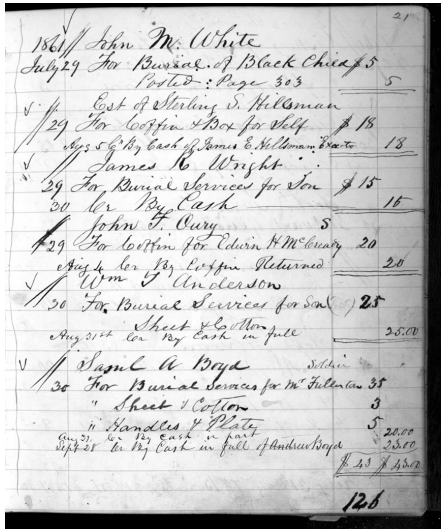 21
1861 // John M. White
July 29 For Burial of Black Child $ 5
Posted: Page 303 5
Est of Sterling S. Hillsman
29 For Coffin & Box for Self $ 18
Aug 5 Cr By Cash of James E. Hillsman Exectr 18
// James R Wright
29 For Burial Services for Son $ 15
30 Cr By Cash 15
John F. Cury S
29 For Coffin for Edwin H McCready 20
Aug 4 Cr By Coffin Returned 20
// Wm J Anderson
30 For Burial Services for Son 25
Sheet & Cotton
Aug 31st Cr By Cash in full 25.00
// Saml A Boyd Soldier
30 For Burial Services for Mr Fullerton 35
" Sheet & Cotton 3
" Handles & Plate 5
Aug 31 Cr By Cash in part 20.00
Sept 28 Cr By Cash in full of Andrew Boyd 23.00
$ 43 $ 43.00
126